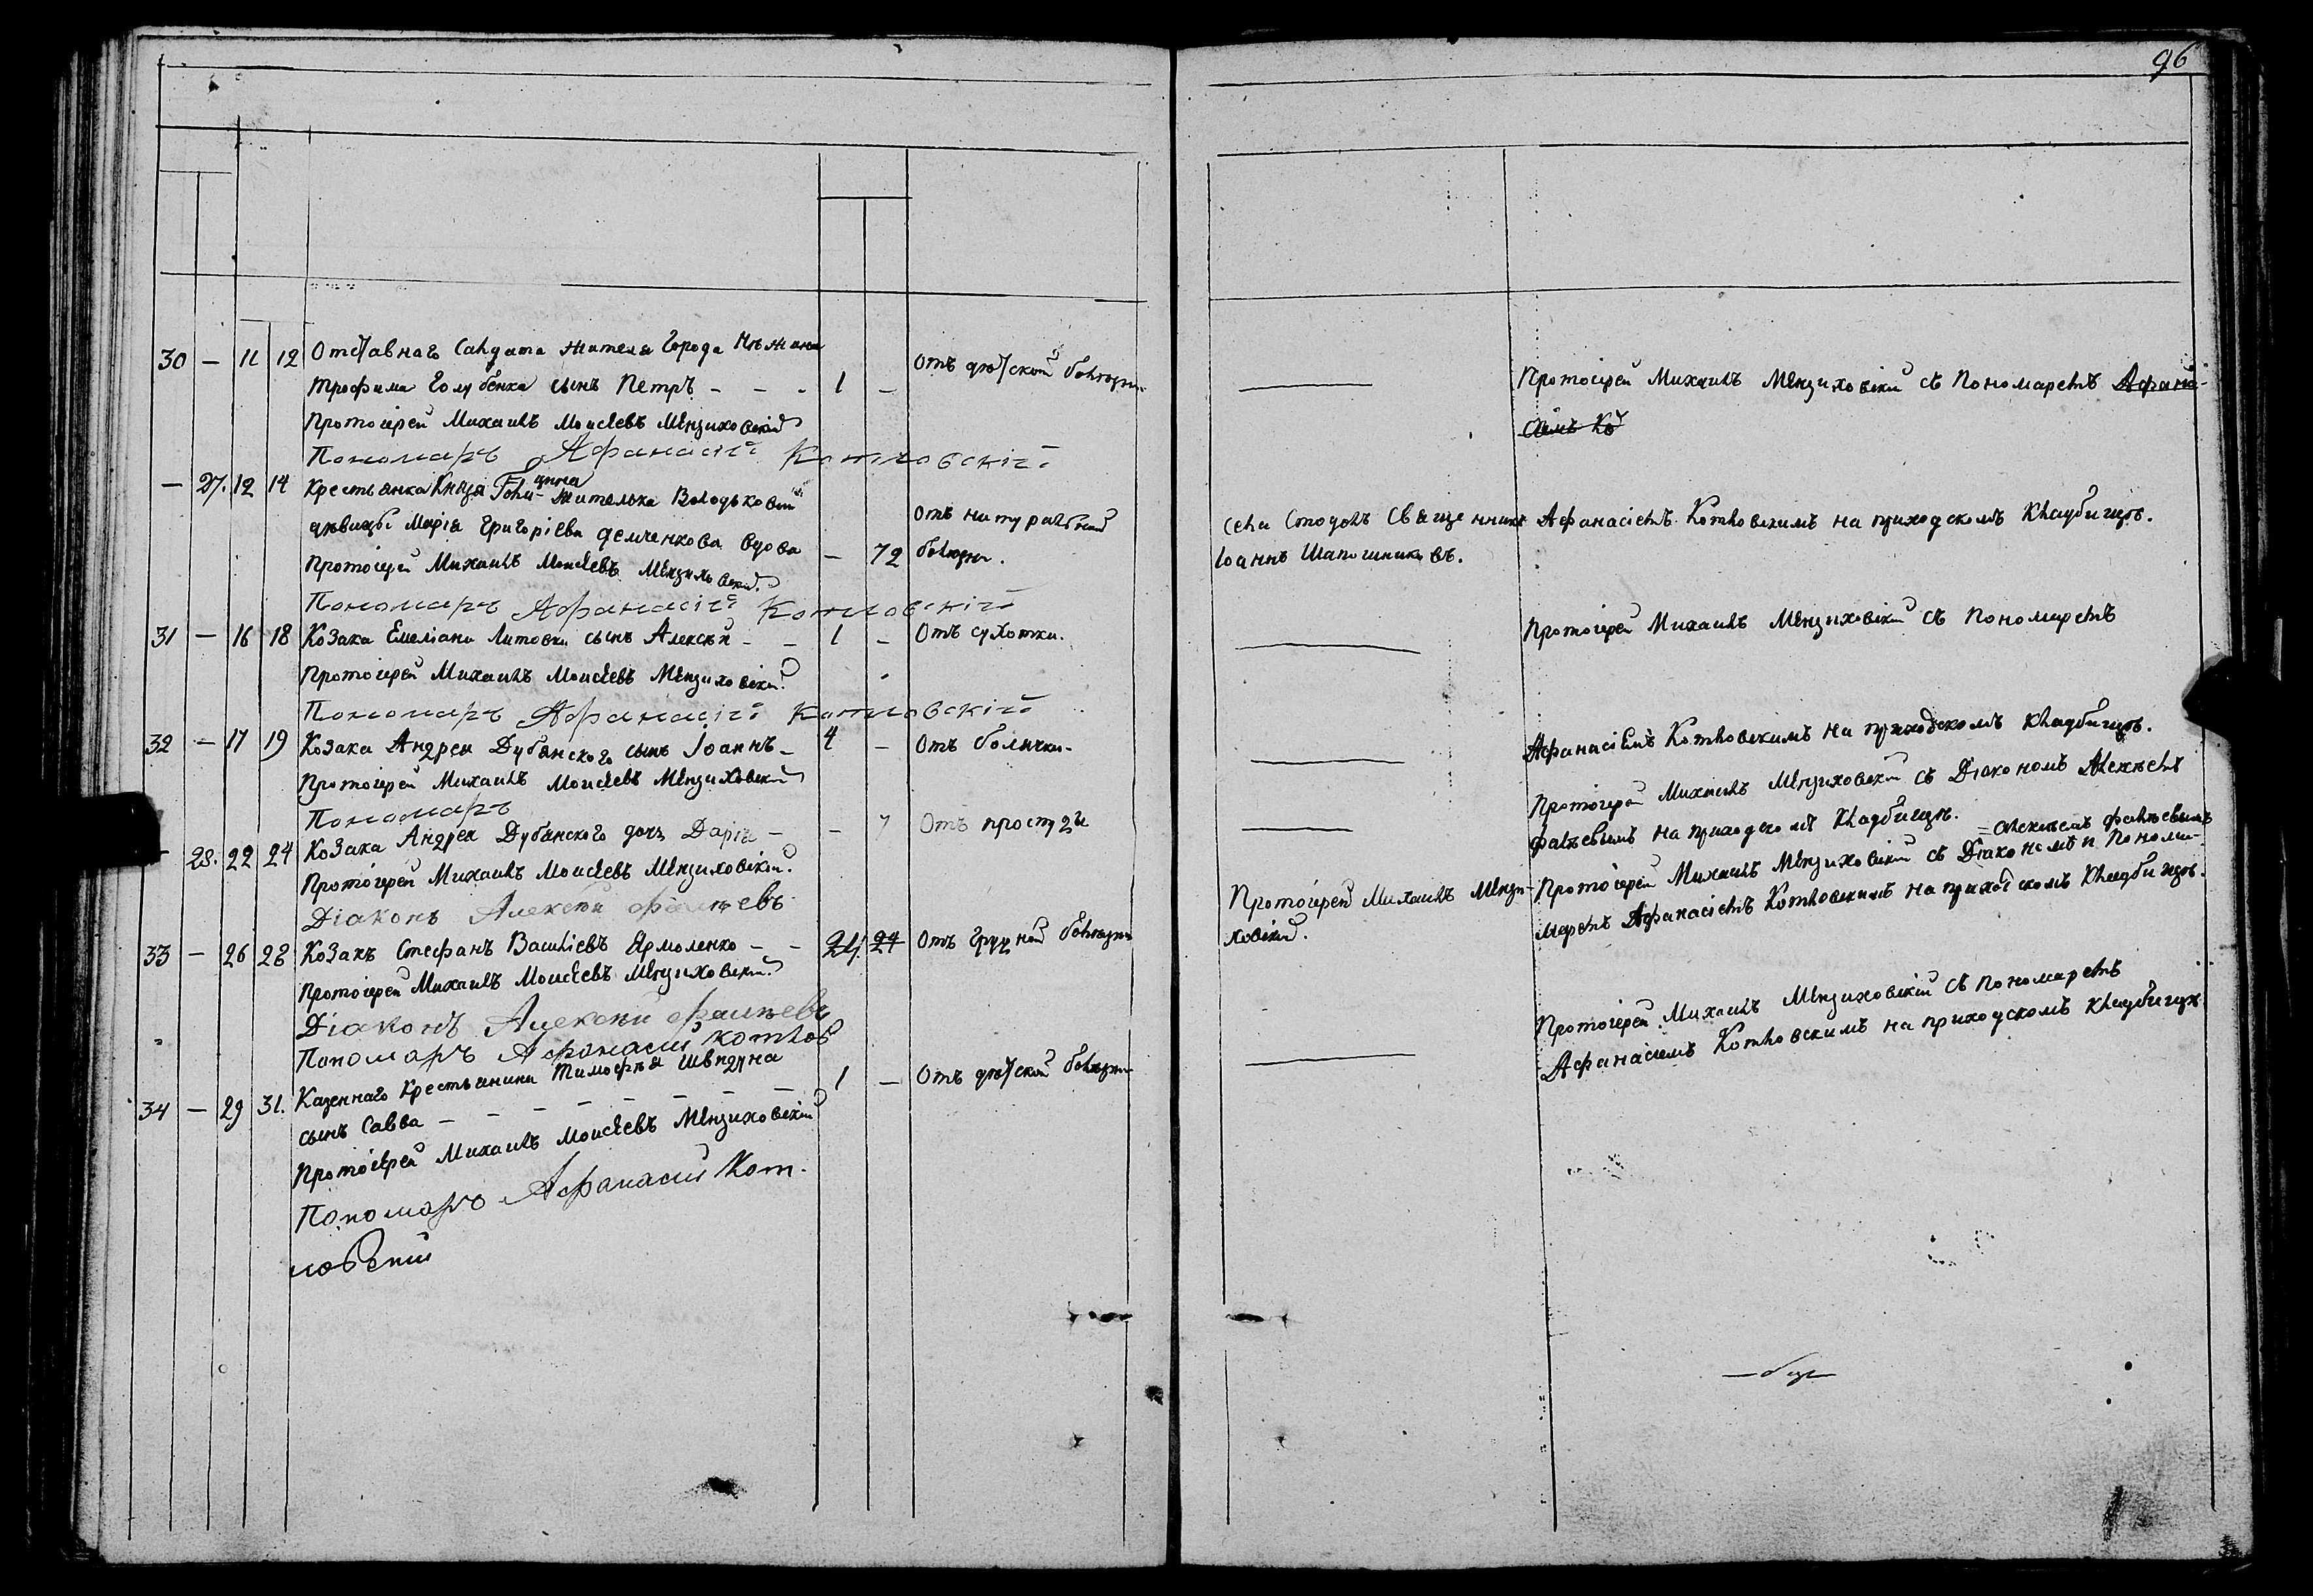 96
30 — 11 12 Отставнаго Салдата жителя города Нѣжина
Трофима Голубенка сынъ Петръ - - - 1 — Отъ дѣтской болѣзни
Протоіерей Михаилъ Моисеевъ Мѣнзиховскій
Пономарь Афанасій Котловскій
— 27. 12 14 Крестьянка Князя Голицина жителька Володьковой
дѣвицы Марія Григоріева Демченкова вдова — 72 Отъ натуральной
болѣзни.
Протоіерей Михаилъ Моисеевъ Мѣнзиховскій.
Пономарь Афанасій Котловскій
31 — 16 18 Козака Емеліана Литовки сынъ Алексѣй - - 1 — Отъ сухотки.
Протоіерей Михаилъ Моисеевъ Мѣнзиховскій.
Пономарь Афанасій Котловскій
32 — 17 19 Козака Андрея Дубянского сынъ Іоаннъ - 4 — Отъ болячки.
Протоіерей Михаилъ Моисеевъ Мѣнзиховскій
Пономарь
— 28. 22 24 Козака Андрея Дубянского дочь Дарія - — 7 Отъ простуды
Протоіерей Михаилъ Моисеевъ Мѣнзиховскій.
Діаконъ Алексѣй Фалѣевъ
33 — 26 28 Козакъ Стефанъ Василіевъ Ярмоленко - - 24. 24 Отъ грудной болѣзни
Протоіерей Михаилъ Моисеевъ Мѣнзиховскій.
Діаконъ Алексѣй Фалѣевъ
Пономарь Афанасій Котлов
34 — 29 31. Казеннаго Крестьянина Тимофѣя Швыдуна
сынъ Савва - - - - - - - 1 — Отъ дѣтской болѣзни
Протоіерей Михаилъ Моисеевъ Мѣнзиховскій
Пономарь Афанасий Кот-
ловский
Села Стодолъ Священникъ
Іоаннъ Шапошниковъ.
Протоіерей Михаилъ Мѣнзи-
ховскій.
Протоіерей Михаилъ Мѣнзиховскій съ Пономаремъ Афана-
сіемъ Ко
Афанасіемъ Котловскимъ на приходскомъ кладбищѣ.
Протоіерей Михаилъ Мѣнзиховскій съ Пономаремъ
Афанасіемъ Котловскимъ на приходскомъ кладбищѣ.
Протоіерей Михаилъ Мѣнзиховскій съ Діакономъ Алексѣемъ
Фалѣевымъ на приходскомъ кладбищѣ.
= Алексѣемъ Фалѣевымъ
Протоіерей Михаилъ Мѣнзиховскій съ Діакономъ и Понома-
ремъ Афанасіемъ Котловскимъ на приходскомъ кладбищѣ.
Протоіерей Михаилъ Мѣнзиховскій съ пономаремъ
Афанасіемъ Котловскимъ на приходскомъ кладбищѣ